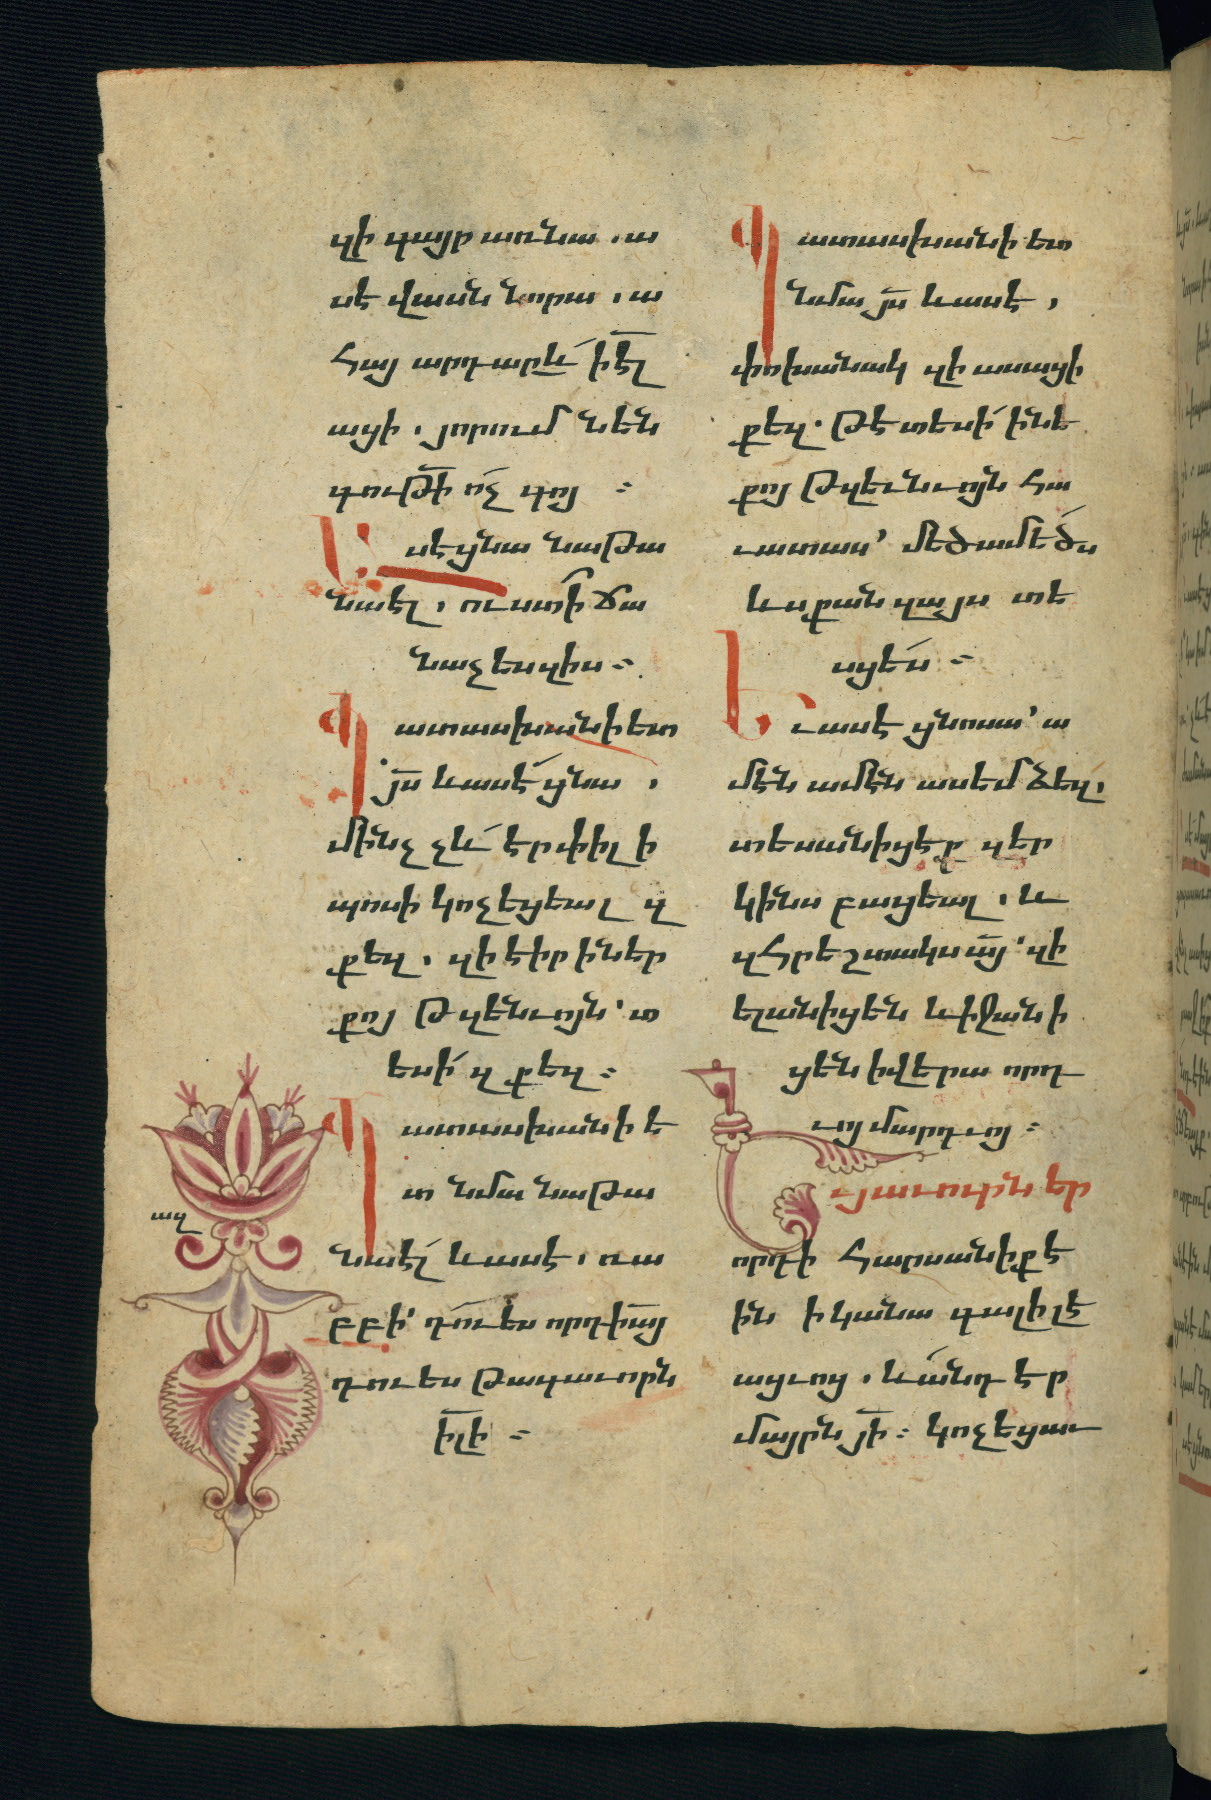 զի գայր առ նա . ա
սէ վասն նորա . ա
հայ արդարև իէլ
ացի . յորում նեն
գութի ոչ գոյ :
Ասէ ցնա նաթա
նաէլ . ուստի ճա
նաչես զիս :
Պատասխանի ետ
յս և ասէ ցնա .
մինչ չև էր փիլի
պոսի կոչեցեալ զ
քեզ . զի էիր ի ներ
քոյ թզենւոյն ՚ տ
եսի զքեզ :
Պատասխանի ե
տ նմա նաթա
նաէլ և ասէ . ռա
բբի ՚ դու ես որդի այ
դու ես թագաւորն
իլի :
Պատասխանի ետ
նմա յս և ասէ .
փոխանակ զի ասացի
քեզ . թէ տեսի ի նե
քոյ թզենւոյն հա
ւատաս ՚ մեծամեծս
ևս քան զայս տե
սցես :
Եւ ասէ ցնոսա ՚ ա
մէն ամէն ասեմ ձեզ .
տեսանիցէք զեր
կինս բացեալ . և
զհրեշտակս այ ՚ զի
ելանիցեն և իջանի
ցեն ի վերա որդ
ւոյ մարդւոյ :
Եւ յաւուրն եր
որդի հարսանիք է
ին ի կանա գալիլէ
ացւոց . և անդ էր
մայրն յի : կոչեցաւ
աղ